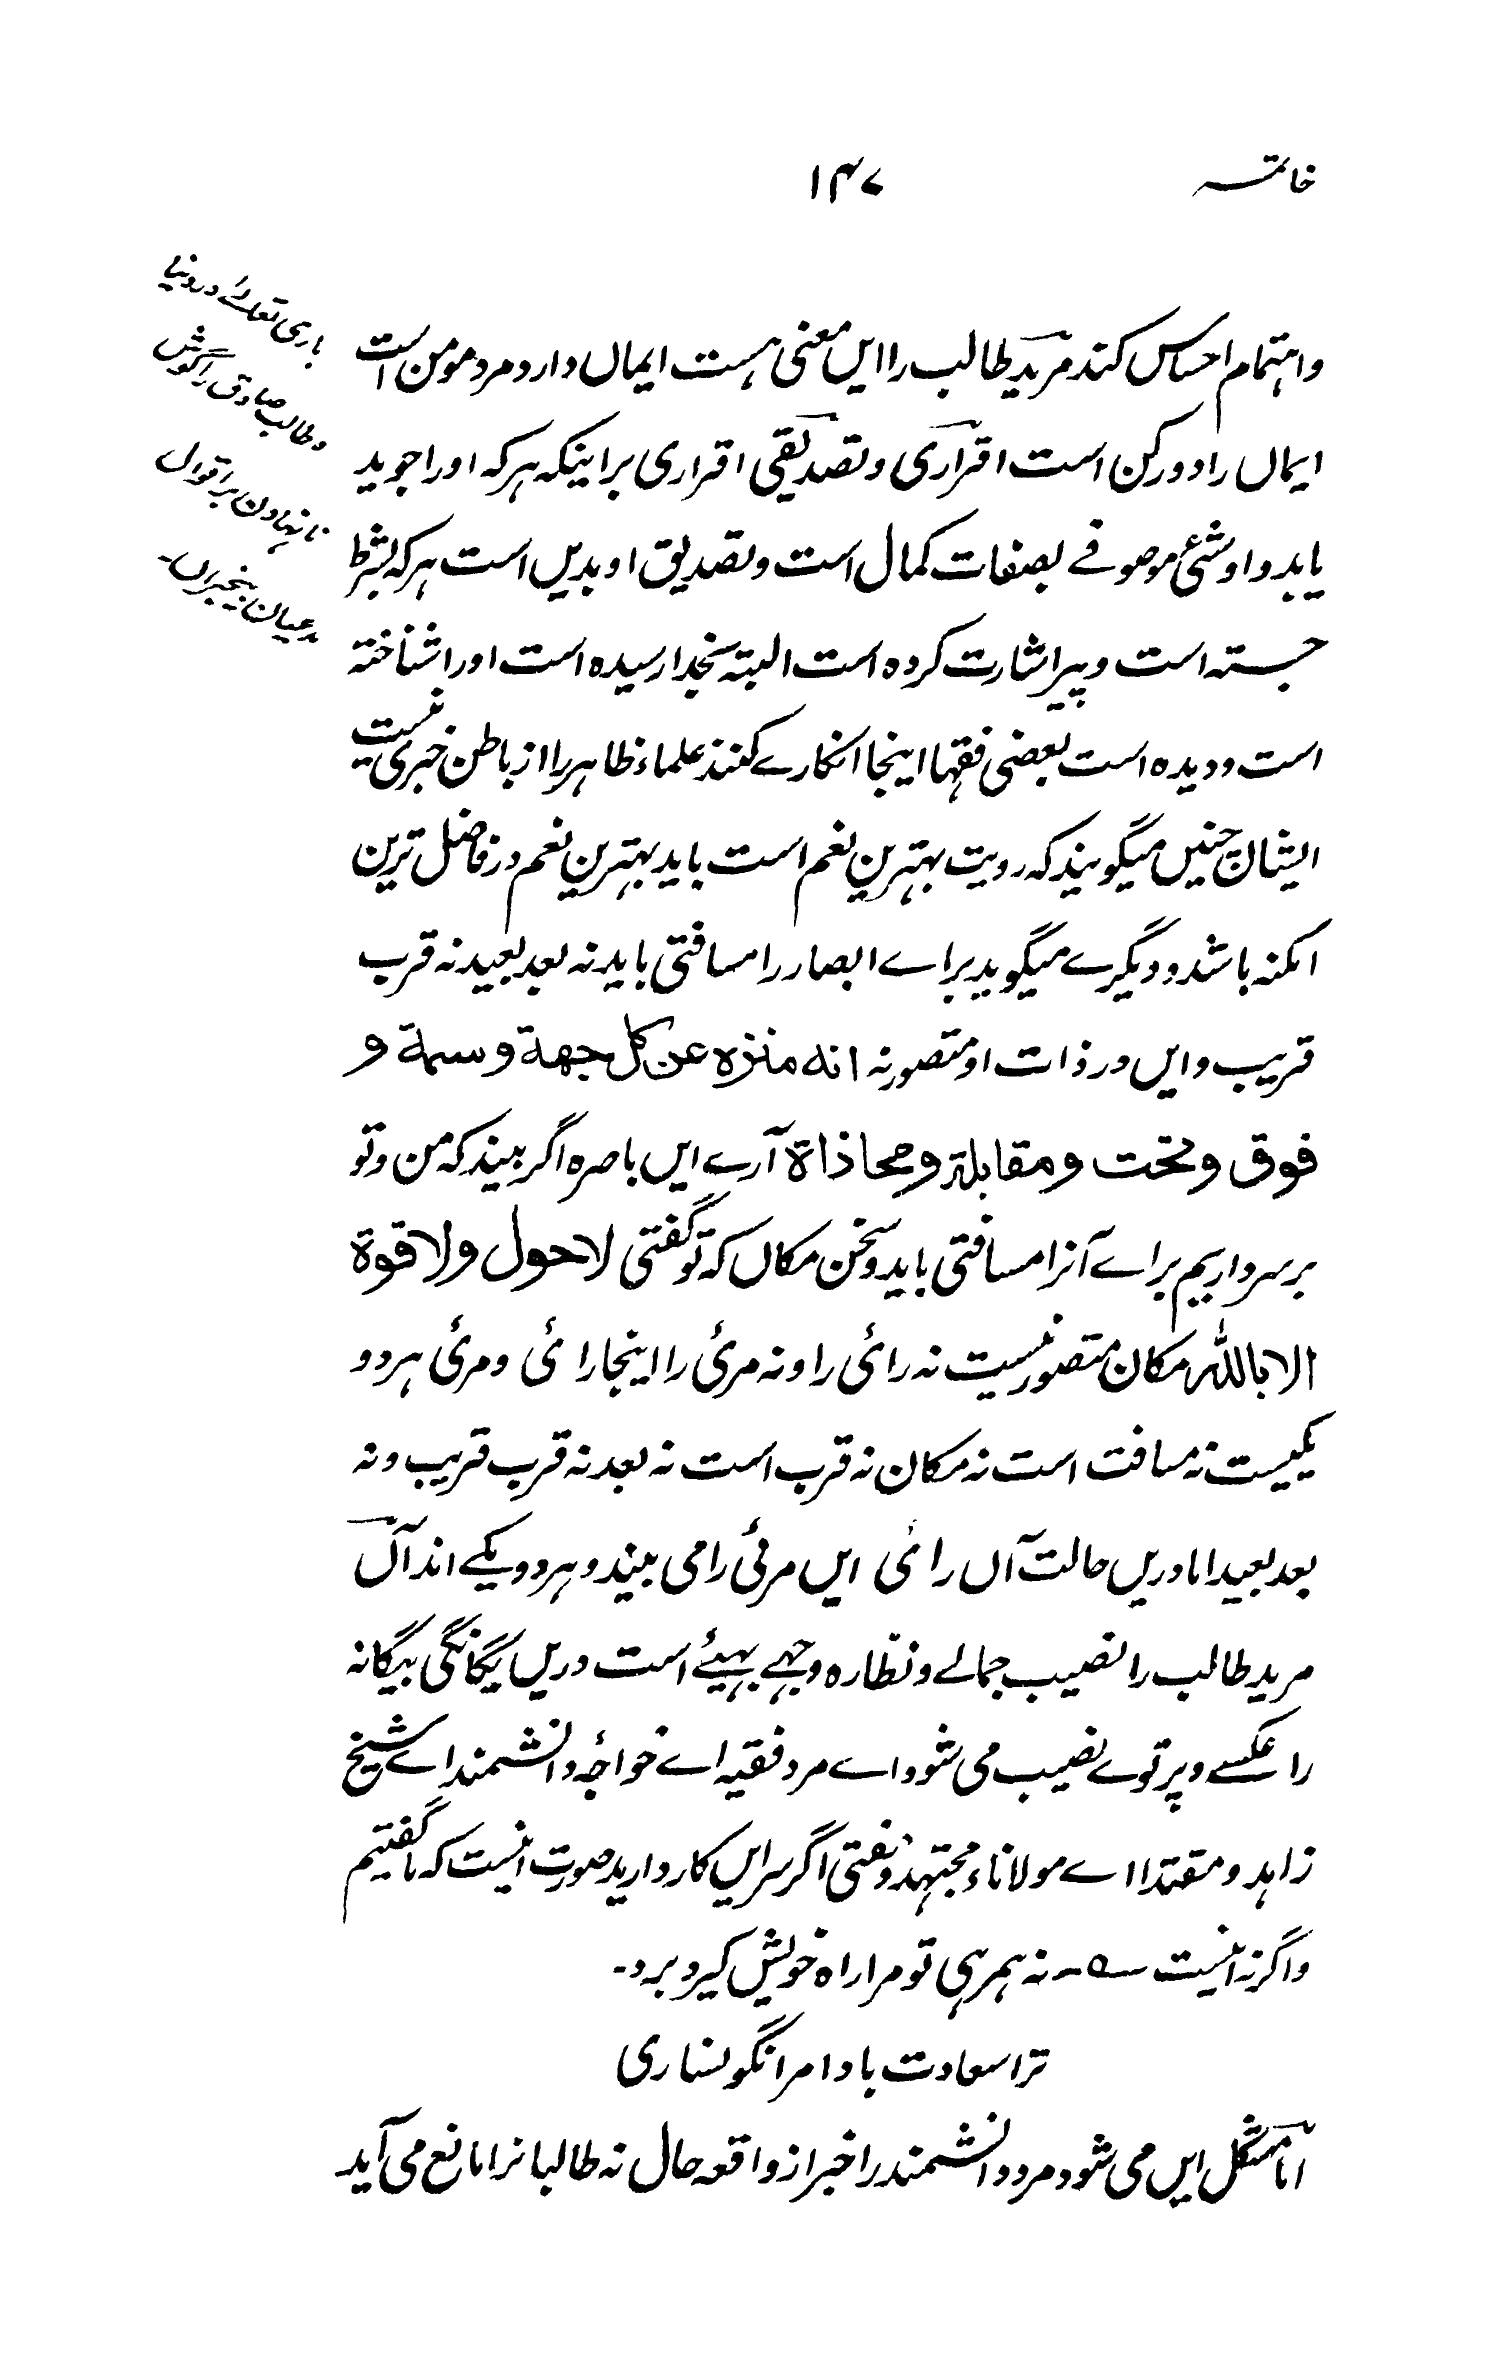 خاتمہ
۱۴۷
باری تعالےٰ در دنیا
و طالب صادق را گوش
نا نہادن بر اقوال
مدعیان بیخبراں۔
واہتمام احساس کند مرید طالب را ایں معنی ہست ایماں دارد مرد مومن است
ایماں را دو رکن است اقراری و تصدیقی اقراری برا ینکہ ہر کہ اورا جوید
یابد و او شئ موصوفے بصفات کمال است و تصدیق او بدیں است ہر کہ بشرط
جستہ است و پیر اشارت کردہ است البتہ بخدا رسیدہ است اورا شناختہ
است و دیدہ است بعضی فقہا اینجا انکارے کنند علماء ظاہر را از باطن خبری نیست
ایشان چنیں میگویند کہ رویت بہترین نعم است باید بہترین نعم در فاضل ترین
امکنہ باشد و دیگرے میگوید براے ابصار را مسافتی باید نہ بعد بعید نہ قرب
قریب و ایں در ذات او متصور نہ انه منزه عن كل جهة وسمة و
فوق وتحت ومقابلة ومحاذاة آرے ایں باصرہ اگر بیند کہ من و تو
بر سر داریم براے آنرا مسافتی باید و سخن مکاں کہ تو گفتی لاحول ولا قوة
الا بالله مکان متصور نیست نہ رائی را و نہ مرئ را اینجا رائی و مرئ ہر دو
یکیست نہ مسافت است نہ مکان نہ قرب است نہ بعد نہ قرب قریب و نہ
بعد بعید اما دریں حالت آں رائی ایں مرئی را می بیند و ہر دو یکے اند آں
مرید طالب را نصیب جمالے و نظارہ وجہے بہیئے است دریں یگانگی بیگانہ
را عکسے و پرتوے نصیب می شود اے مرد فقیہ اے خواجۂ دانشمند اے شیخ
زاہد و مقتدا اے مولاناء مجتہد و مفتی اگر سر ایں کار دارید صورت اینست کہ ما گفتیم
واگر نہ اینست ـــ۵ـــ نہ ہمرہی تو مرا راہ خویش گیر و برد۔
ترا سعادت بادا مرا نگونساری
اما مشکل ایں می شود مرد دانشمند را خبر از واقعہ حال نہ طالبانرا مانع می آید